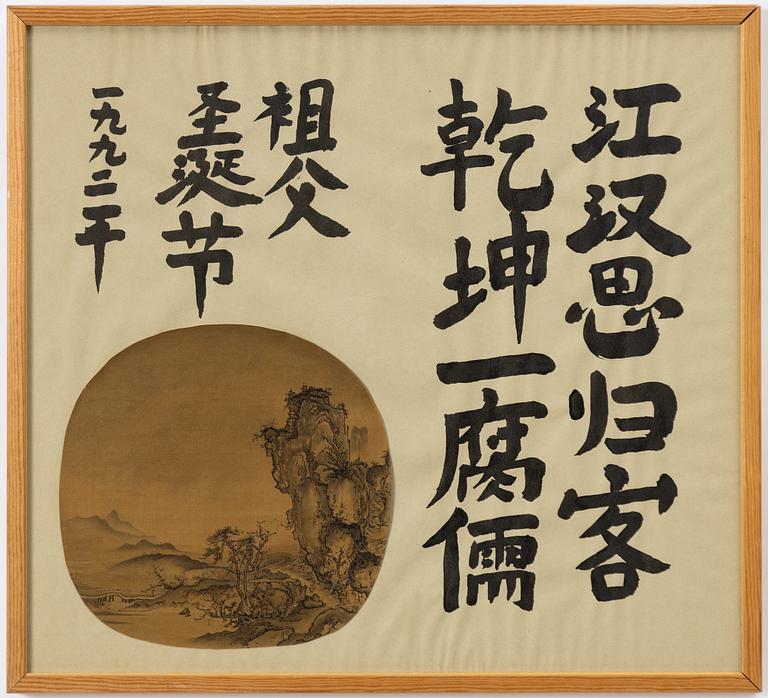 江汉思归客
乾坤一腐儒
祖父
圣诞节
一九九二干